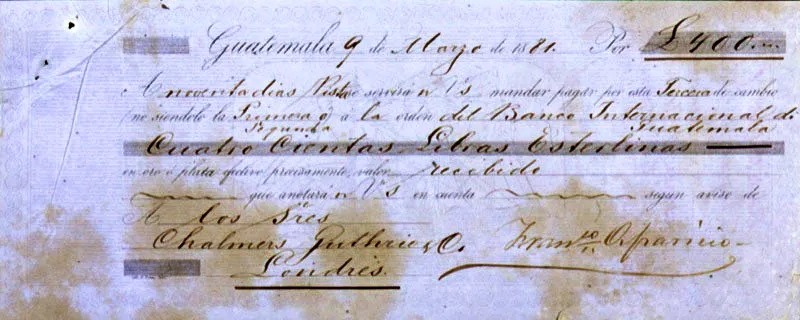 Guatemala 9 de Marzo de 1881. Por £ 400 ...
A noventa dias Vista se servirán Vs mandar pagar por esta Tercera de cambio
(no siéndolo la Primera ó Segunda) á la orden del Banco Internacional de Guatemala
Cuatro Cientas Libras Esterlinas
en oro o plata efectivo precisamente, valor recibido
que anotarán Vs en cuenta segun aviso de
A los Sres
Chalmers Guthrie & Co. Franco Aparicio
Londres.